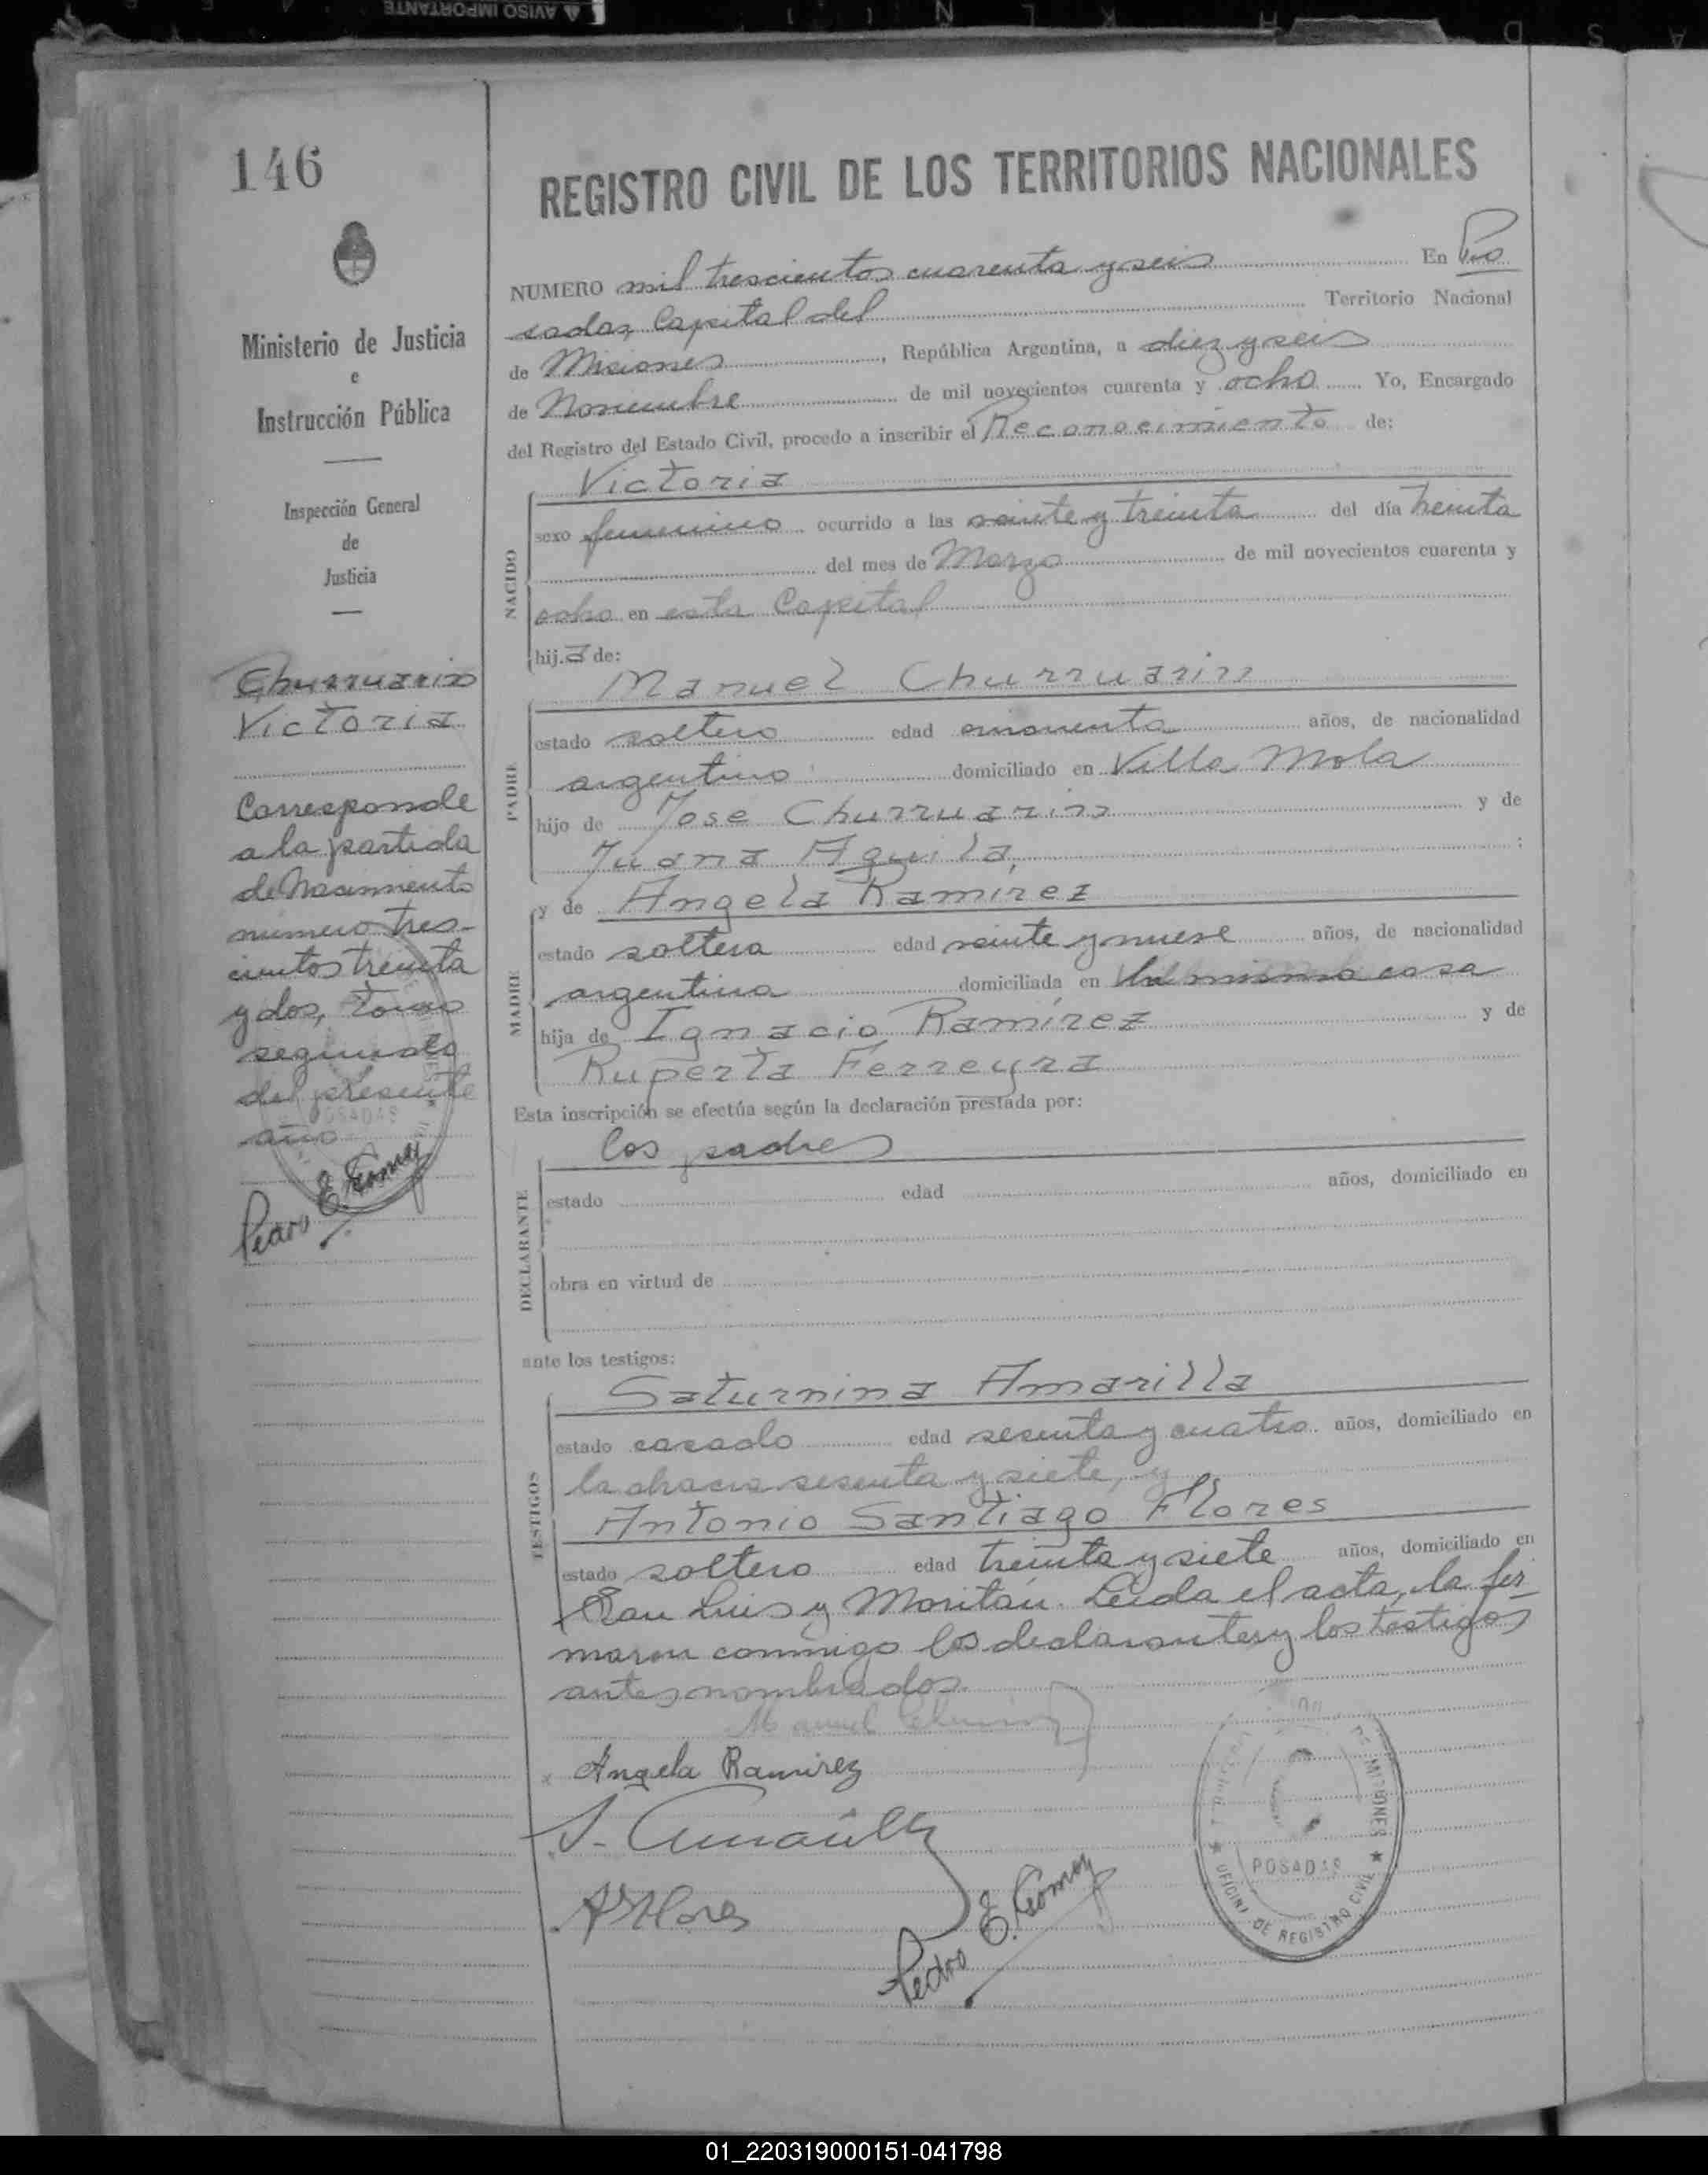 AVISO IMPORTANTE
146
Ministerio de Justicia
e
Instrucción Pública
Inspección General
de
Justicia
Churruarin
Victoria
Corresponde
a la partida
de Nacimiento
numero tres-
cientos treinta
y dos, tomo
segundo
del presente
año
Pedro E. Gomez
REGISTRO CIVIL DE LOS TERRITORIOS NACIONALES
NUMERO mil trescientos cuarenta y seis En Po
sadas, Capital del Territorio Nacional
de Misiones, República Argentina, a diez y seis
de Noviembre de mil novecientos cuarenta y ocho Yo, Encargado
del Registro del Estado Civil, procedo a inscribir el Reconocimiento de:
Victoria
NACIDO
sexo femenino ocurrido a las veinte y treinta del día treinta
del mes de Marzo de mil novecientos cuarenta y
ocho en esta Capital
hija de:
Manuel Churruarin
PADRE
estado soltero edad años, de nacionalidad
argentino domiciliado en Villa Mola
hijo de Jose Churruarin y de
Juana Aguila;
y de Angela Ramirez
MADRE
estado soltera edad veinte y nueve años, de nacionalidad
argentina domiciliada en la misma casa
hija de Ignacio Ramirez y de
Ruperta Ferreyra
Esta inscripción se efectúa según la declaración prestada por:
los padres
DECLARANTE
estado edad años, domiciliado en
obra en virtud de
ante los testigos:
Saturnina Amarilla
TESTIGOS
estado casado edad sesenta y cuatro años, domiciliado en
la chacra sesenta y siete, y
Antonio Santiago Flores
estado soltero edad treinta y siete años, domiciliado en
San Luis y Moritán. Leida el acta, la fir
maron conmigo los declarantes y los testigos
antes nombrados.
Manuel
x Angela Ramirez
S. Amarilla
A S Flores
Pedro E. Gomez
DE MISIONES
POSADAS
OFICINA DE REGISTRO CIVIL
01_220319000151-041798